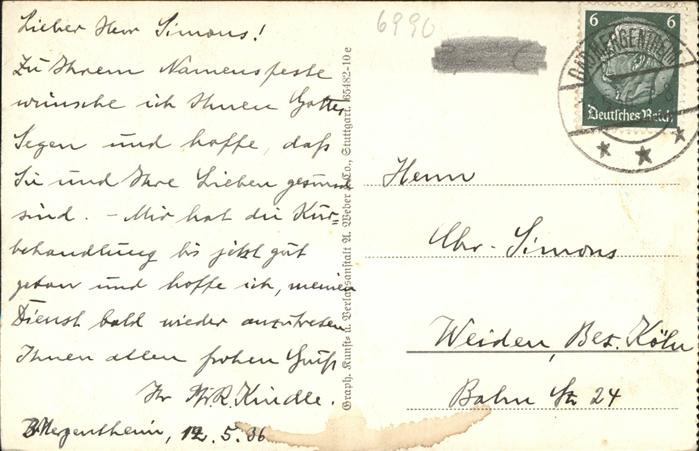 Lieber Herr Simons!
Zu Ihrem Namensfeste
wünsche ich Ihnen Gottes
Segen und hoffe, daß
Sie und Ihre Lieben gesund
sind. - Mir hat die Kur=
behandlung bis jetzt gut
getan und hoffe ich, meinen
Dienst bald wieder anzutreten
Ihnen allen frohen Gruß
Ihr Kindle.
B. Mergentheim, 12. 5. 36
Graph. Kunst- u. Verlagsanstalt A. Weber & Co., Stuttgart. 65482-10 e
6990
6 6
Deutsches Reich
BAD MERGENTHEIM
Herrn
Chr. Simons
Weiden, Bez. Köln
Bahn Str 24